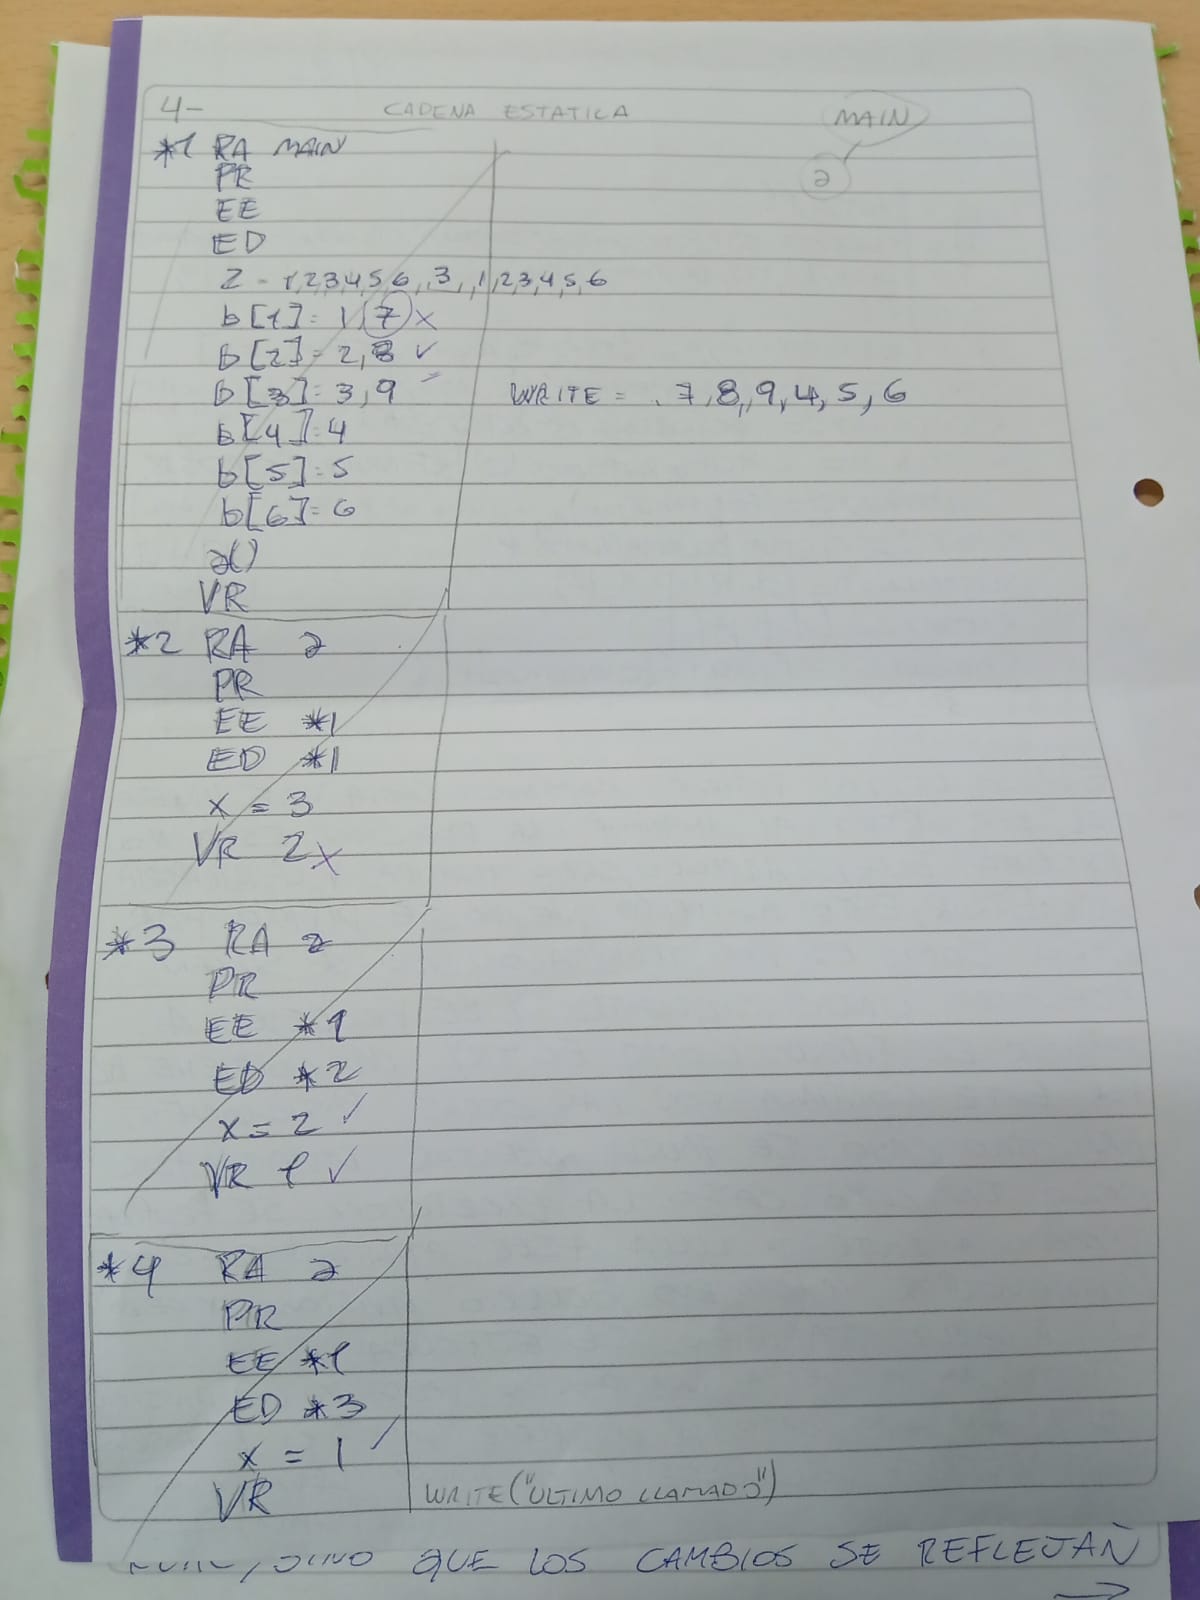 4- CADENA ESTATICA MAIN
*1 RA MAIN
PR
a
EE
ED
z - 1,2,3,4,5,6,,3,,1,2,3,4,5,6
b[1]= 1,7 x
b[2]= 2,8 ✓
b[3]= 3,9 WRITE = . 7,8,,9,4,5,6
b[4]=4
b[5]=5
b[6]=6
a()
VR
*2 RA a
PR
EE *1
ED *1
x = 3
VR 2 x
*3 RA a
PR
EE *1
ED *2
x = 2 ✓
VR 1 ✓
*4 RA a
PR
EE *1
ED *3
x = 1 ✓
VR WRITE("ULTIMO LLAMADO")
SINO QUE LOS CAMBIOS SE REFLEJAN
→